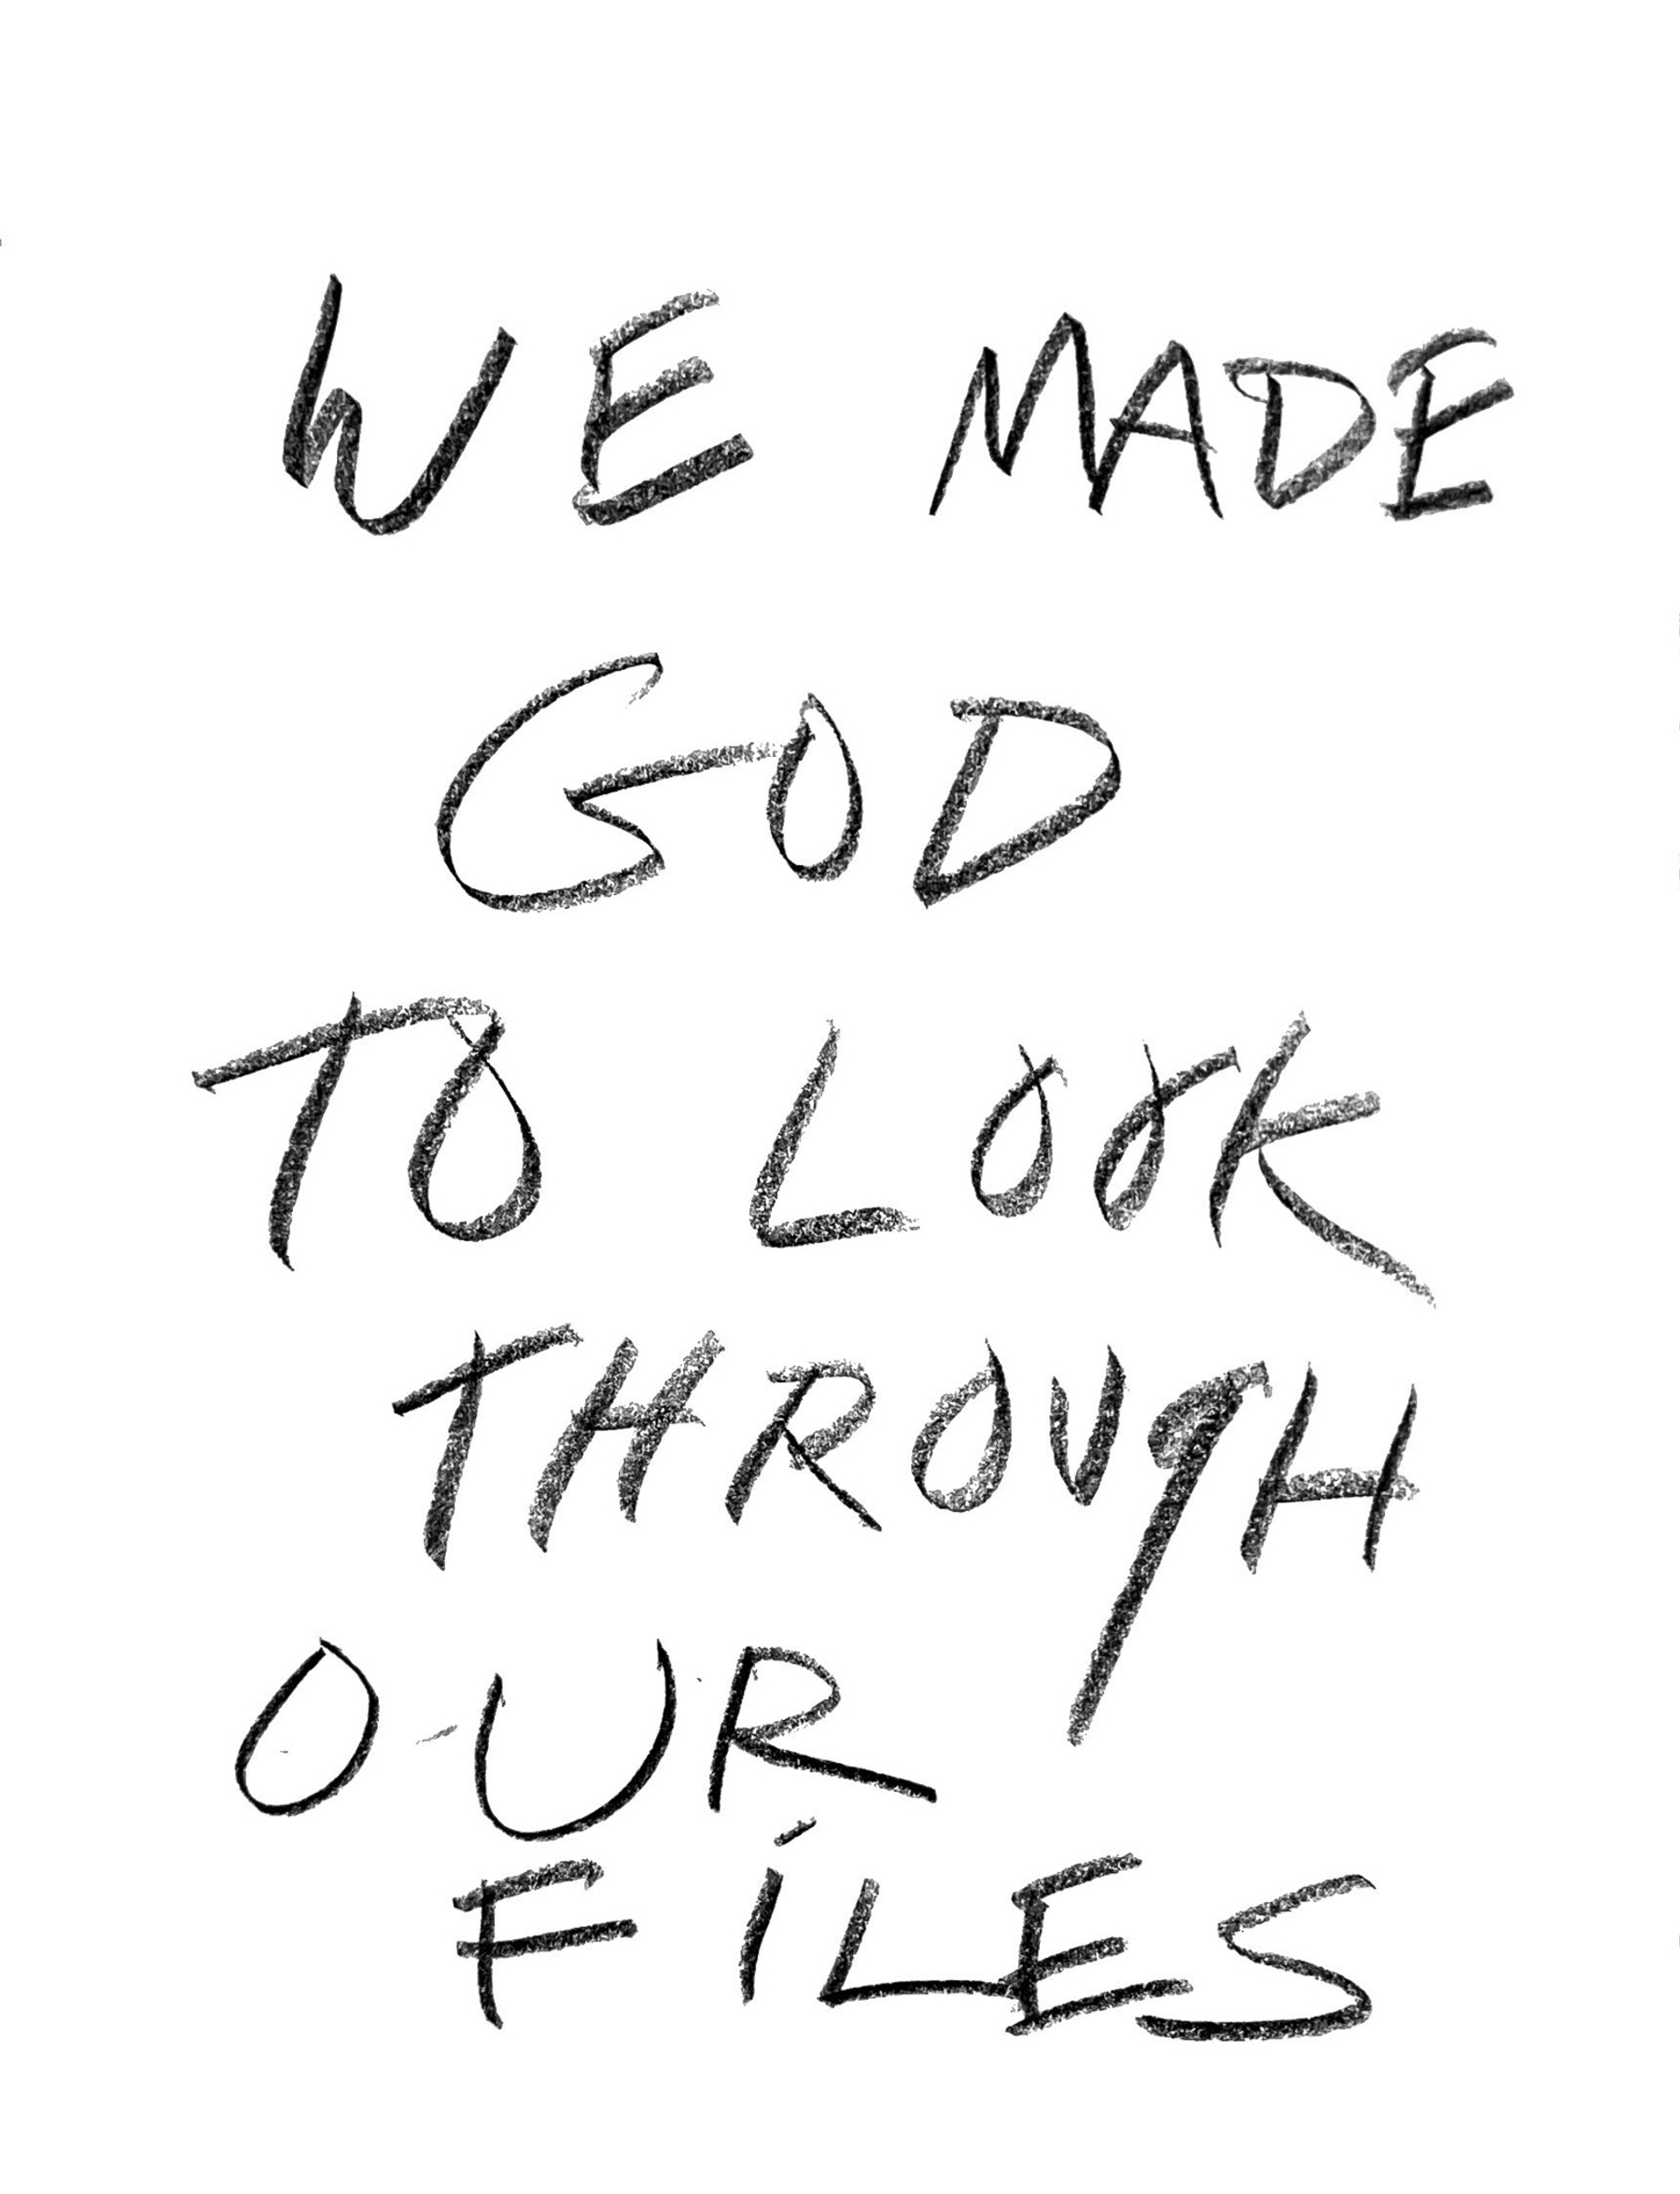 WE MADE
GOD
TO LOOK
THROUGH
OUR
FiLES